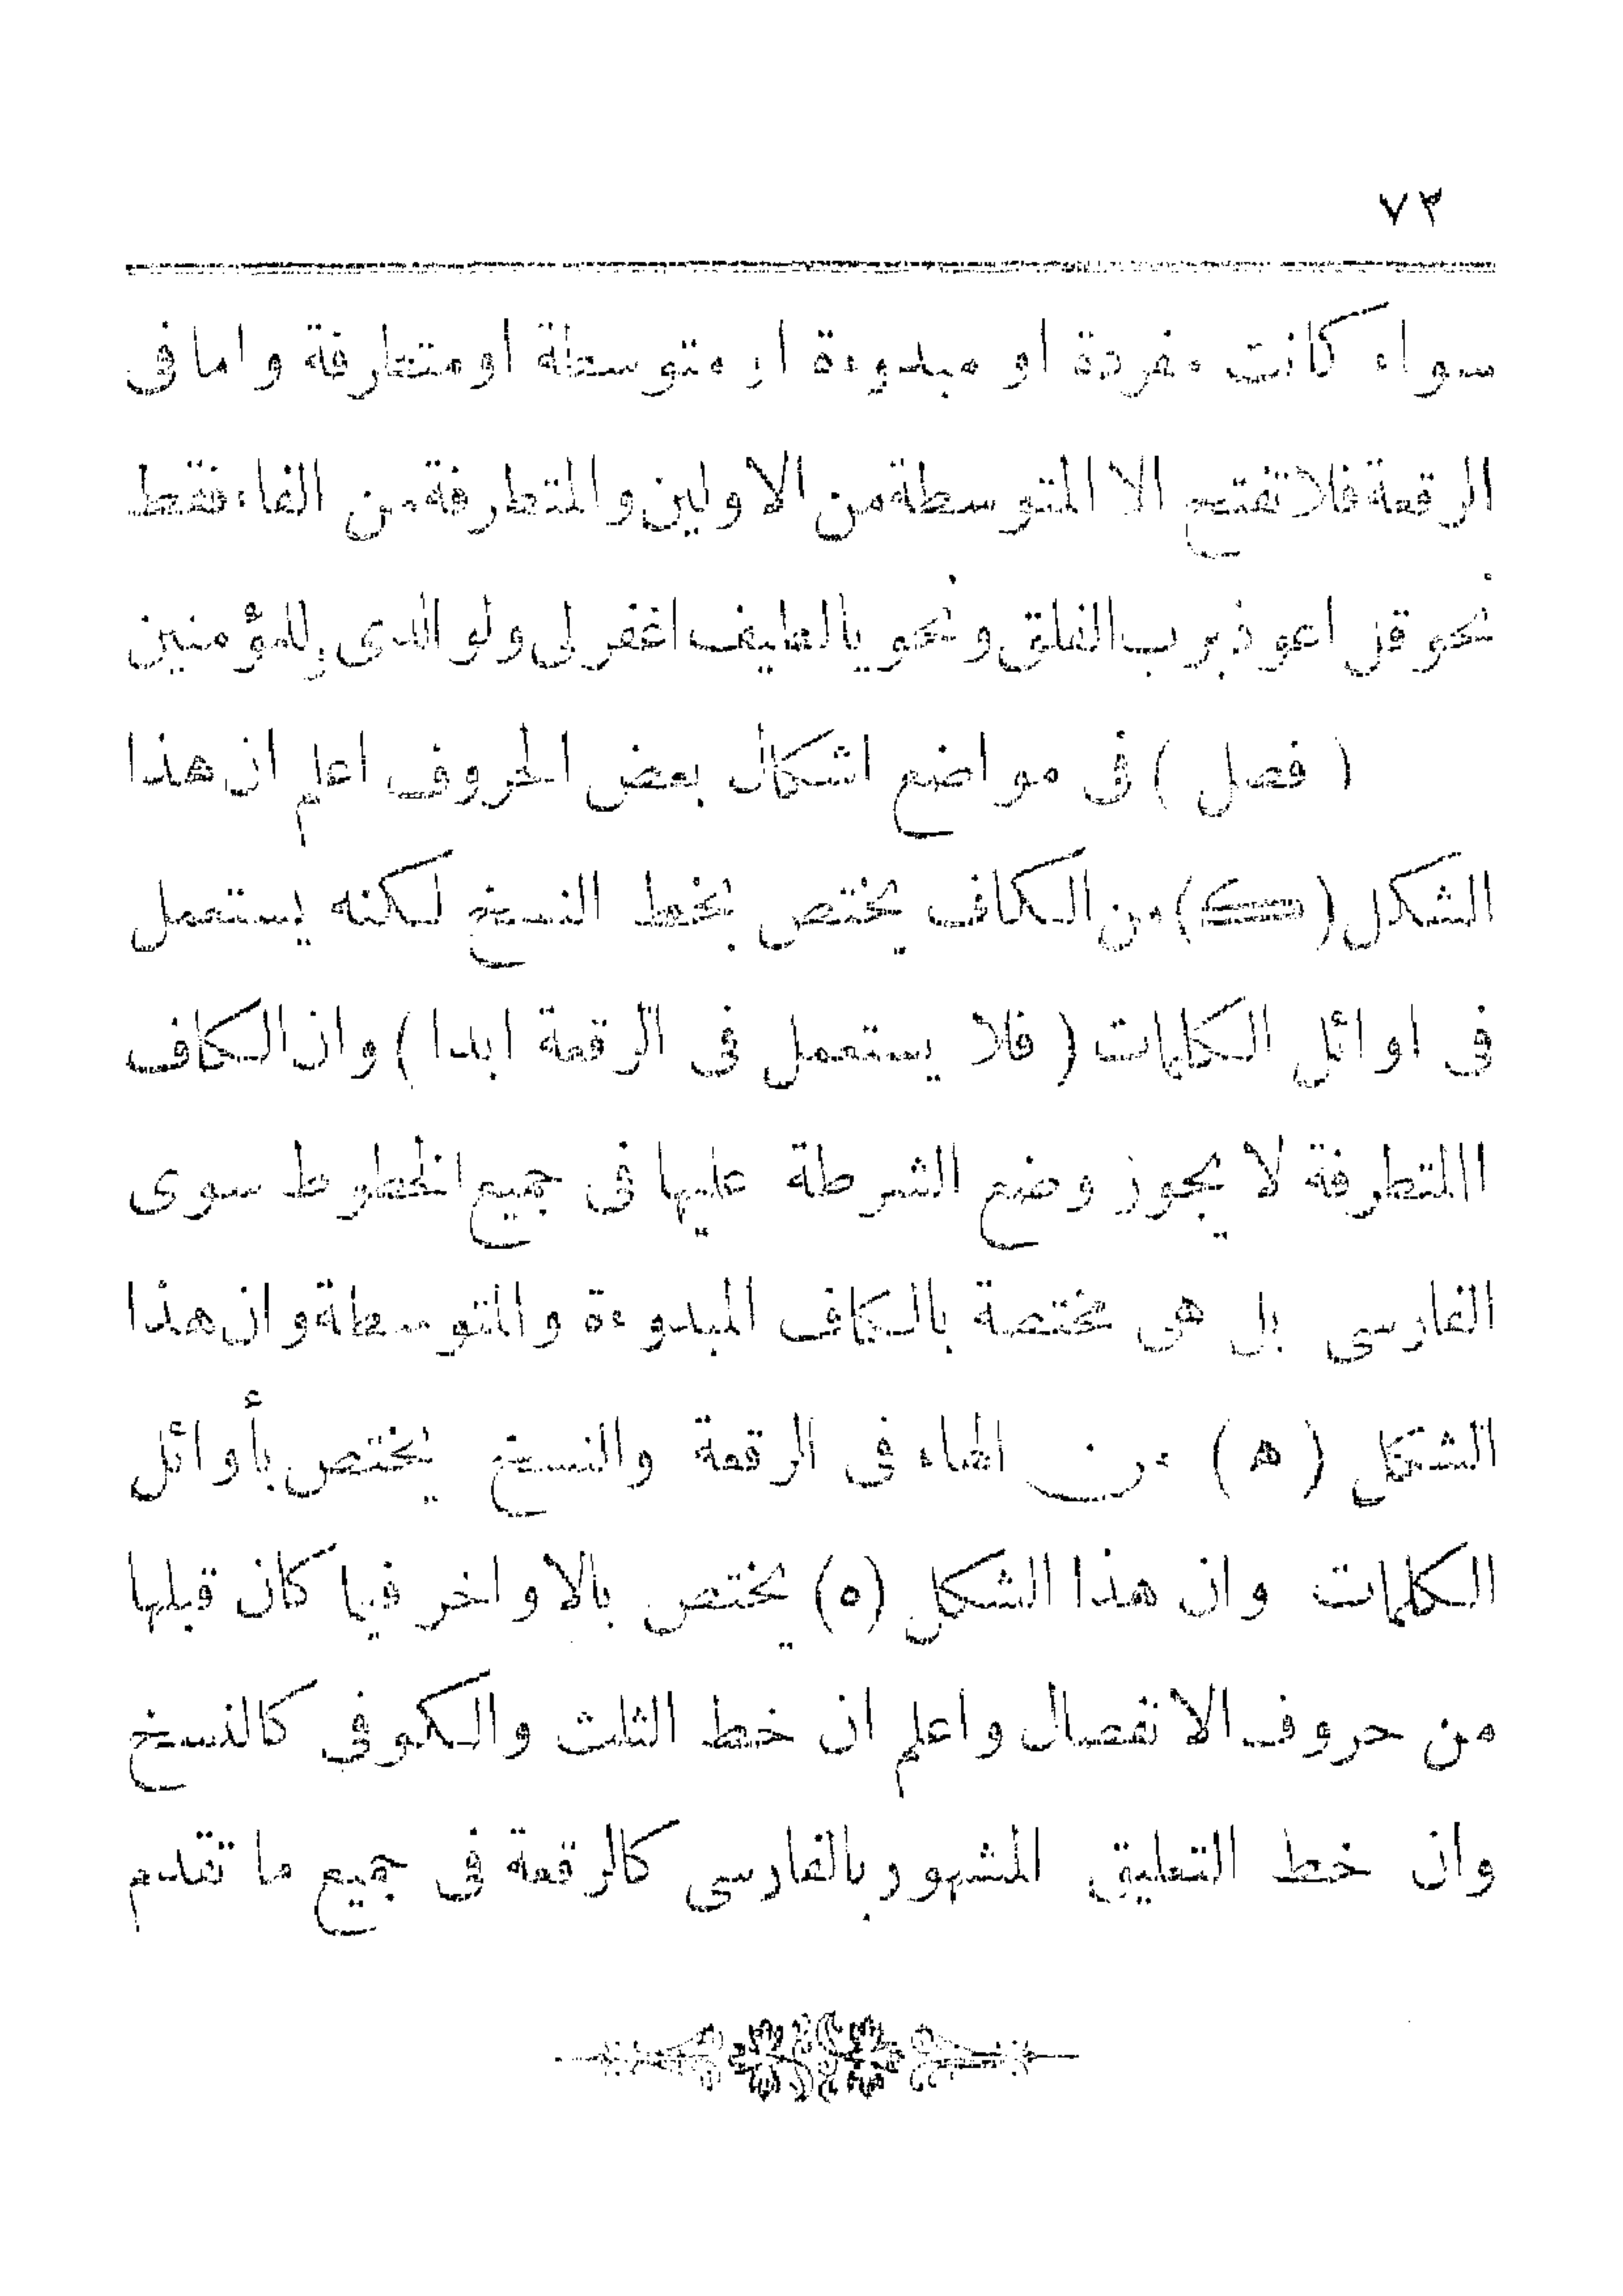 ٧٣
سواء كانت مفردة او مبدوءة او متوسطة او متطرفة واما فى
الرقعة فلا تفتح الا المتوسطة من الاولين والمتطرفة من الفاء فقط
نحو قل اعوذ برب الفلق ونحو يا لطيف اغفر لى ولوالدى وللمؤمنين
( فصل ) فى مواضع اشكال بعض الحروف اعلم ان هذا
الشكل (ک) من الكاف يختص بخط النسخ لكنه يستعمل
فى اوائل الكلمات ( فلا يستعمل فى الرقعة ابدا ) وان الكاف
االمتطرفة لا يجوز وضع الشرطة عليها فى جميع الخطوط سوى
الفارسى بل هى مختصة بالكاف المبدوءة والمتوسطة وان هذا
الشكل ( ه ) من الهاء فى الرقعة والنسخ يختص بأوائل
الكلمات وان هذا الشكل (ه) يختص بالاواخر فيما كان قبلها
من حروف الانفصال واعلم ان خط الثلث والكوفى كالنسخ
وان خط التعليق المشهور بالفارسى كالرقعة فى جميع ما تقدم